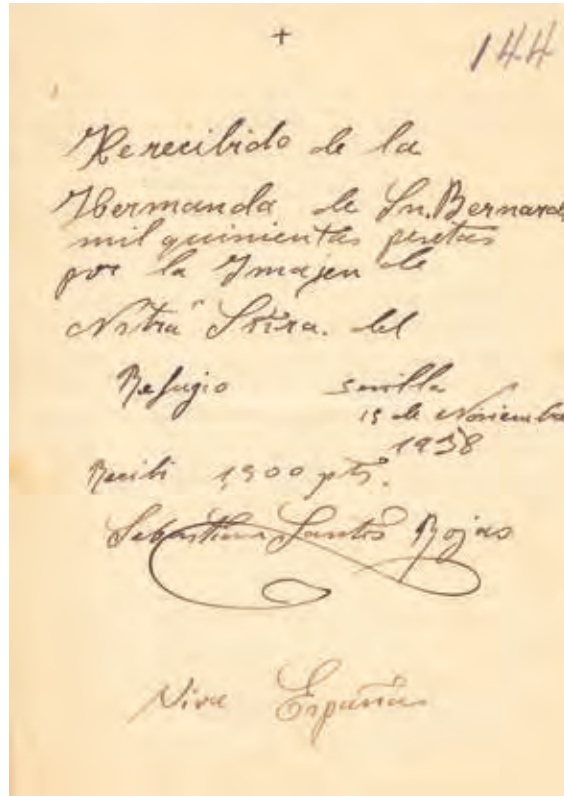 +
144
He recibido de la
Hermanda de Sn. Bernardo
mil quinientas pesetas
por la Imajen de
Ntra Sñra. del
Refugio Sevilla
15 de Noviembre
1938
Recibi 1,500 pts.
Sebastian Santos Rojas
Viva España